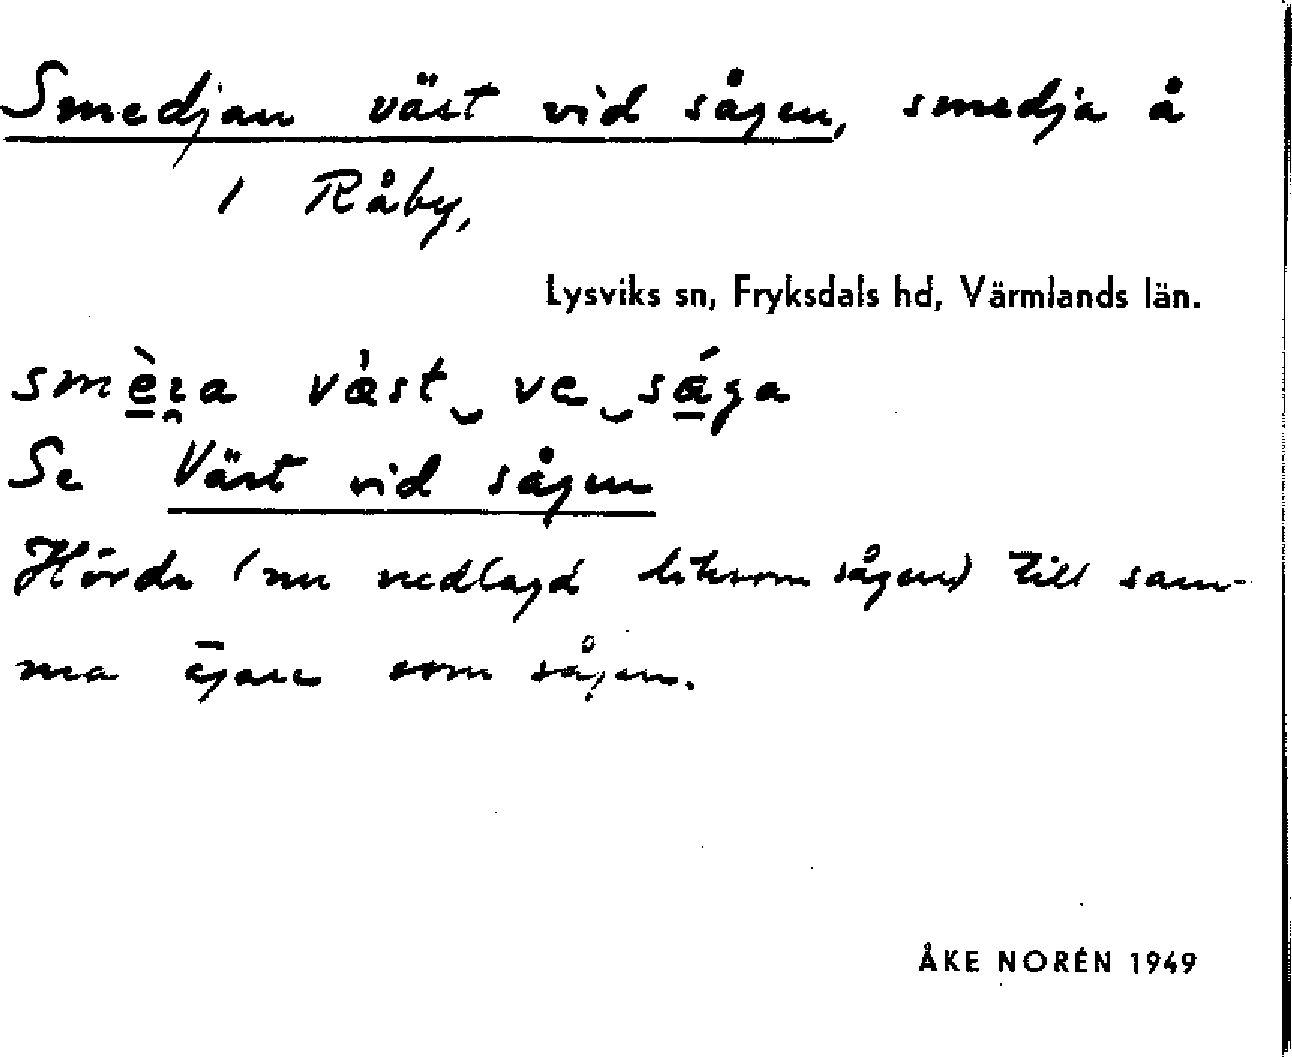 Smedjan väst vid sågen, smedja å
1 Råby,
Lysviks sn, Fryksdals hd, Värmlands län.
smèṛa væ̀st‿ve‿sága
Se Väst vid sågen
Hörde (nu nedlagd liksom sågen) till sam-
ma ägare som sågen.
ÅKE NORÉN 1949